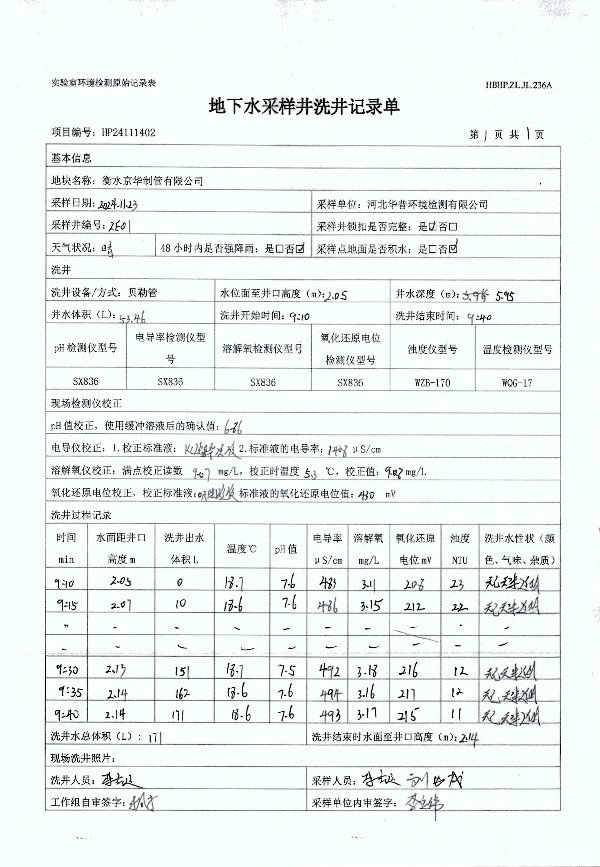 实验室环境检测原始记录表 HBHP.ZL.JL.236A
地下水采样井洗井记录单
项目编号：HP24111402 第1页 共1页
基本信息
地块名称：衡水京华制管有限公司
采样日期：2024.11.23 采样单位：河北华普环境检测有限公司
采样井编号：2E01 采样井锁扣是否完整：是☑否□
天气状况：晴 48小时内是否强降雨：是□否☑ 采样点地面是否积水：是□否☑
洗井
洗井设备/方式：贝勒管 水位面至井口高度（m）：2.05 井水深度（m）：5.95
井水体积（L）：53.46 洗井开始时间：9:10 洗井结束时间：9:40
pH检测仪型号 电导率检测仪型号 溶解氧检测仪型号 氧化还原电位检测仪型号 浊度仪型号 温度检测仪型号
SX836 SX836 SX836 SX836 WZB-170 WQG-17
现场检测仪校正
pH值校正，使用缓冲溶液后的确认值：6.86
电导仪校正：1.校正标准液： 2.标准液的电导率：1408 μS/cm
溶解氧仪校正：满点校正读数 9.07 mg/L，校正时温度 5.3 ℃，校正值：9.08 mg/L
氧化还原电位校正，校正标准液： 标准液的氧化还原电位值：430 mV
洗井过程记录
时间 min 水面距井口高度 m 洗井出水体积 L 温度℃ pH值 电导率 μS/cm 溶解氧 mg/L 氧化还原电位 mV 浊度 NTU 洗井水性状（颜色、气味、杂质）
9:10 2.05 0 18.7 7.6 483 3.11 208 23
9:15 2.07 10 18.6 7.6 486 3.15 212 22
9:30 2.13 151 18.7 7.5 492 3.18 216 12
9:35 2.14 162 18.6 7.6 494 3.16 217 12
9:40 2.14 171 18.6 7.6 493 3.17 215 11
洗井水总体积（L）：171 洗井结束时水面至井口高度（m）：2.14
现场洗井照片：
洗井人员： 采样人员：
工作组自审签字： 采样单位内审签字：